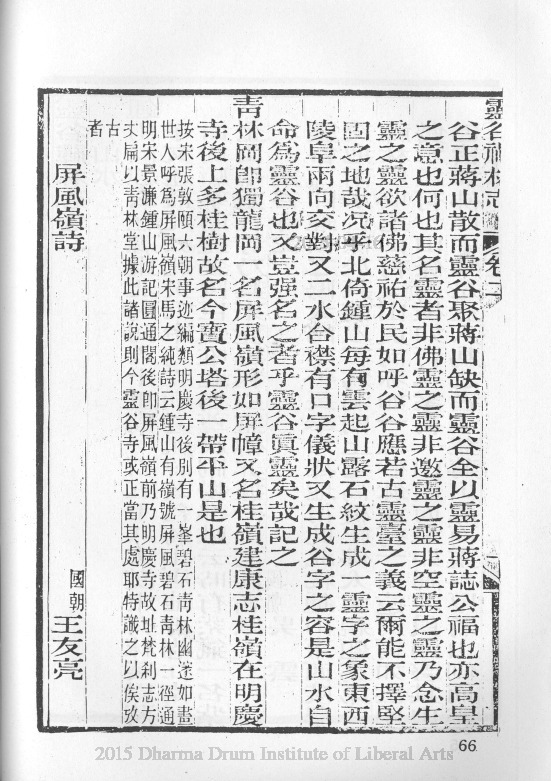 靈谷禪林志 卷二
谷正蔣山散而靈谷聚蔣山缺而靈谷全以靈易蔣誌公福也亦高皇
之意也何也其名靈者非佛靈之靈非邀靈之靈非空靈之靈乃念生
靈之靈欲諸佛慈祐於民如呼谷谷應若古靈臺之義云爾能不擇堅
固之地哉況乎北倚鍾山每有雲起山露石紋生成 靈字之象東西
陵阜兩向交對又二水合襟有口字儀狀又生成谷字之容是山水自
命為靈谷也又豈强名之者乎靈谷眞靈矣哉記之
青林岡卽獨龍岡一名屏風嶺形如屏幛又名桂嶺建康志桂嶺在明慶
寺後上多桂樹故名今寶公塔後一帶平山是也
按宋張敦頤六朝事迹編類明慶寺後別有一峯碧石青林幽邃如畫
世人呼為屏風嶺宋馬之純詩云鍾山有嶺號屏風碧石青林一徑通
明宋景濂鍾山游記圓通閣後卽屏風嶺前乃明慶寺故址梵刹志方
丈扁以青林堂據此諸說則今靈谷寺或正當其處耶特識之以俟攷
古
者
屏風嶺詩 國朝王友亮
66
2015 Dharma Drum Institute of Liberal Arts